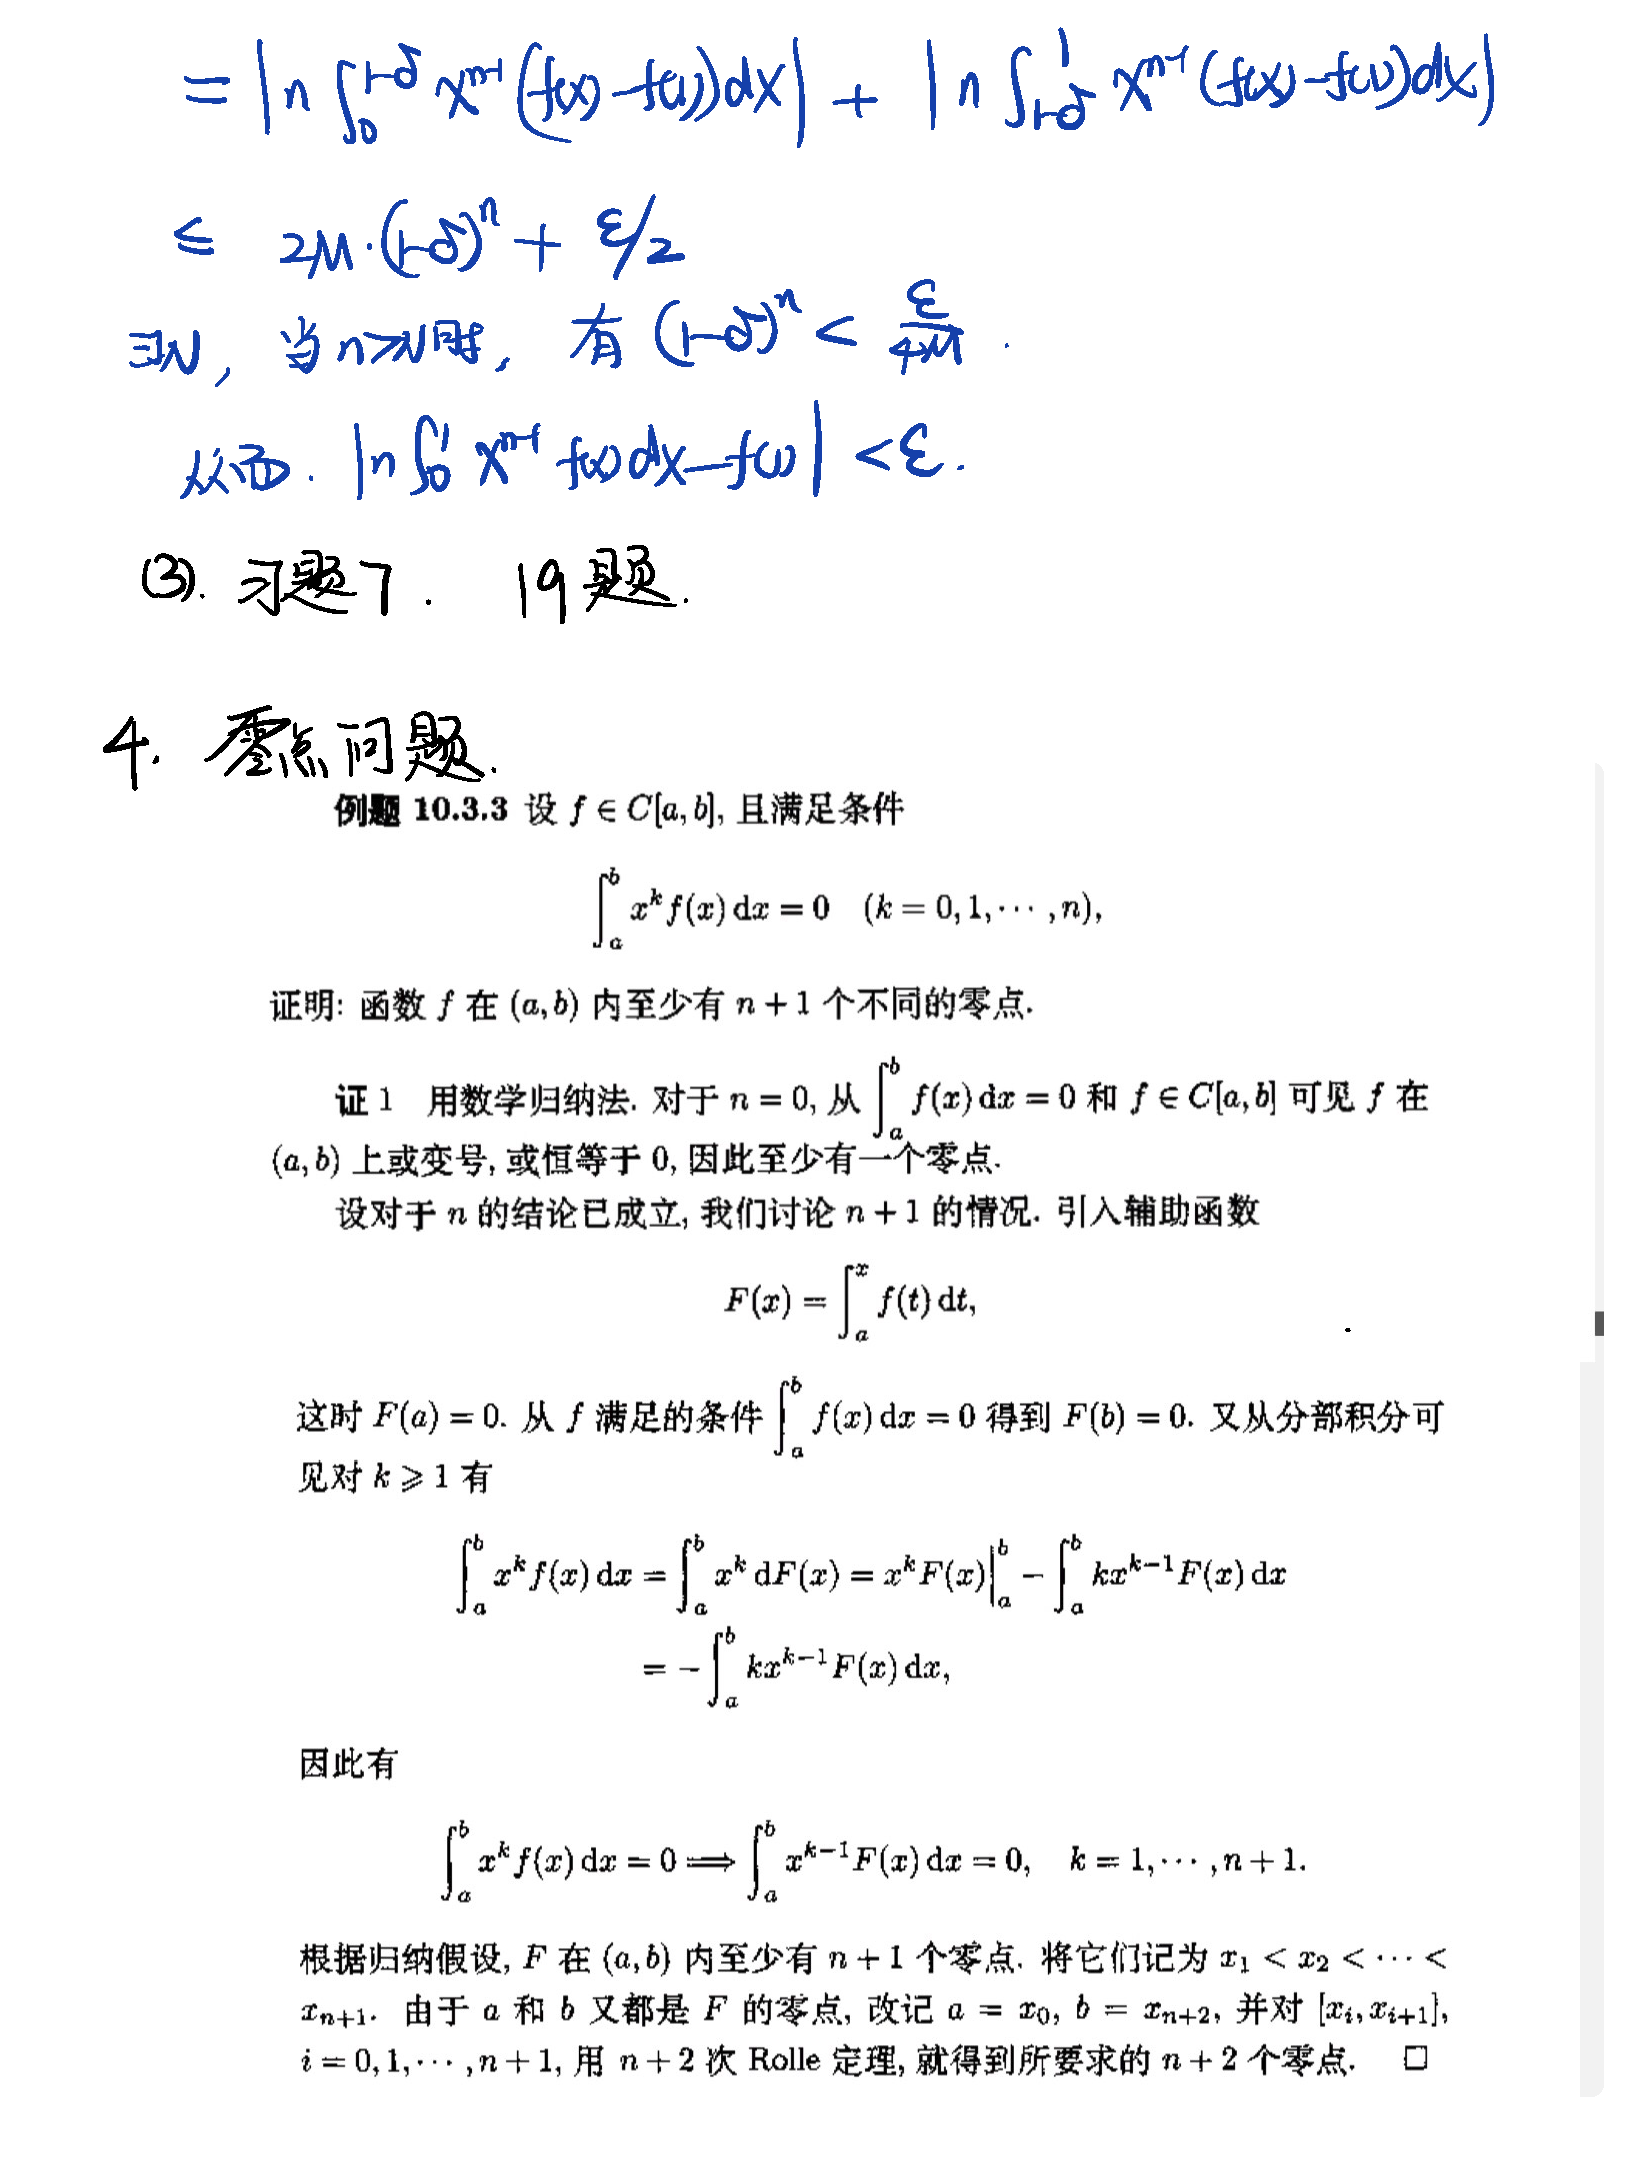 = |n ∫₀^{1-δ} xⁿ⁻¹ (f(x) - f(1)) dx| + |n ∫_{1-δ}^1 xⁿ⁻¹ (f(x) - f(1)) dx|
≤ 2M·(1-δ)ⁿ + ε/2
∃N, 当 n≥N时, 有 (1-δ)ⁿ < ε/4M .
从而. |n ∫₀¹ xⁿ⁻¹ f(x) dx - f(1)| < ε.
(3). 习题7. 19题.
4. 零点问题.
例题 10.3.3 设 f ∈ C[a, b], 且满足条件
∫_a^b x^k f(x) dx = 0 (k = 0, 1, ⋯ , n),
证明: 函数 f 在 (a, b) 内至少有 n + 1 个不同的零点.
证 1 用数学归纳法. 对于 n = 0, 从 ∫_a^b f(x) dx = 0 和 f ∈ C[a, b] 可见 f 在
(a, b) 上或变号, 或恒等于 0, 因此至少有一个零点.
设对于 n 的结论已成立, 我们讨论 n + 1 的情况. 引入辅助函数
F(x) = ∫_a^x f(t) dt,
这时 F(a) = 0. 从 f 满足的条件 ∫_a^b f(x) dx = 0 得到 F(b) = 0. 又从分部积分可
见对 k ⩾ 1 有
∫_a^b x^k f(x) dx = ∫_a^b x^k dF(x) = x^k F(x)|_a^b − ∫_a^b kx^{k−1} F(x) dx
= − ∫_a^b kx^{k−1} F(x) dx,
因此有
∫_a^b x^k f(x) dx = 0 ⟹ ∫_a^b x^{k−1} F(x) dx = 0, k = 1, ⋯ , n + 1.
根据归纳假设, F 在 (a, b) 内至少有 n + 1 个零点. 将它们记为 x₁ < x₂ < ⋯ <
x_{n+1}. 由于 a 和 b 又都是 F 的零点, 改记 a = x₀, b = x_{n+2}, 并对 [x_i, x_{i+1}],
i = 0, 1, ⋯ , n + 1, 用 n + 2 次 Rolle 定理, 就得到所要求的 n + 2 个零点. □